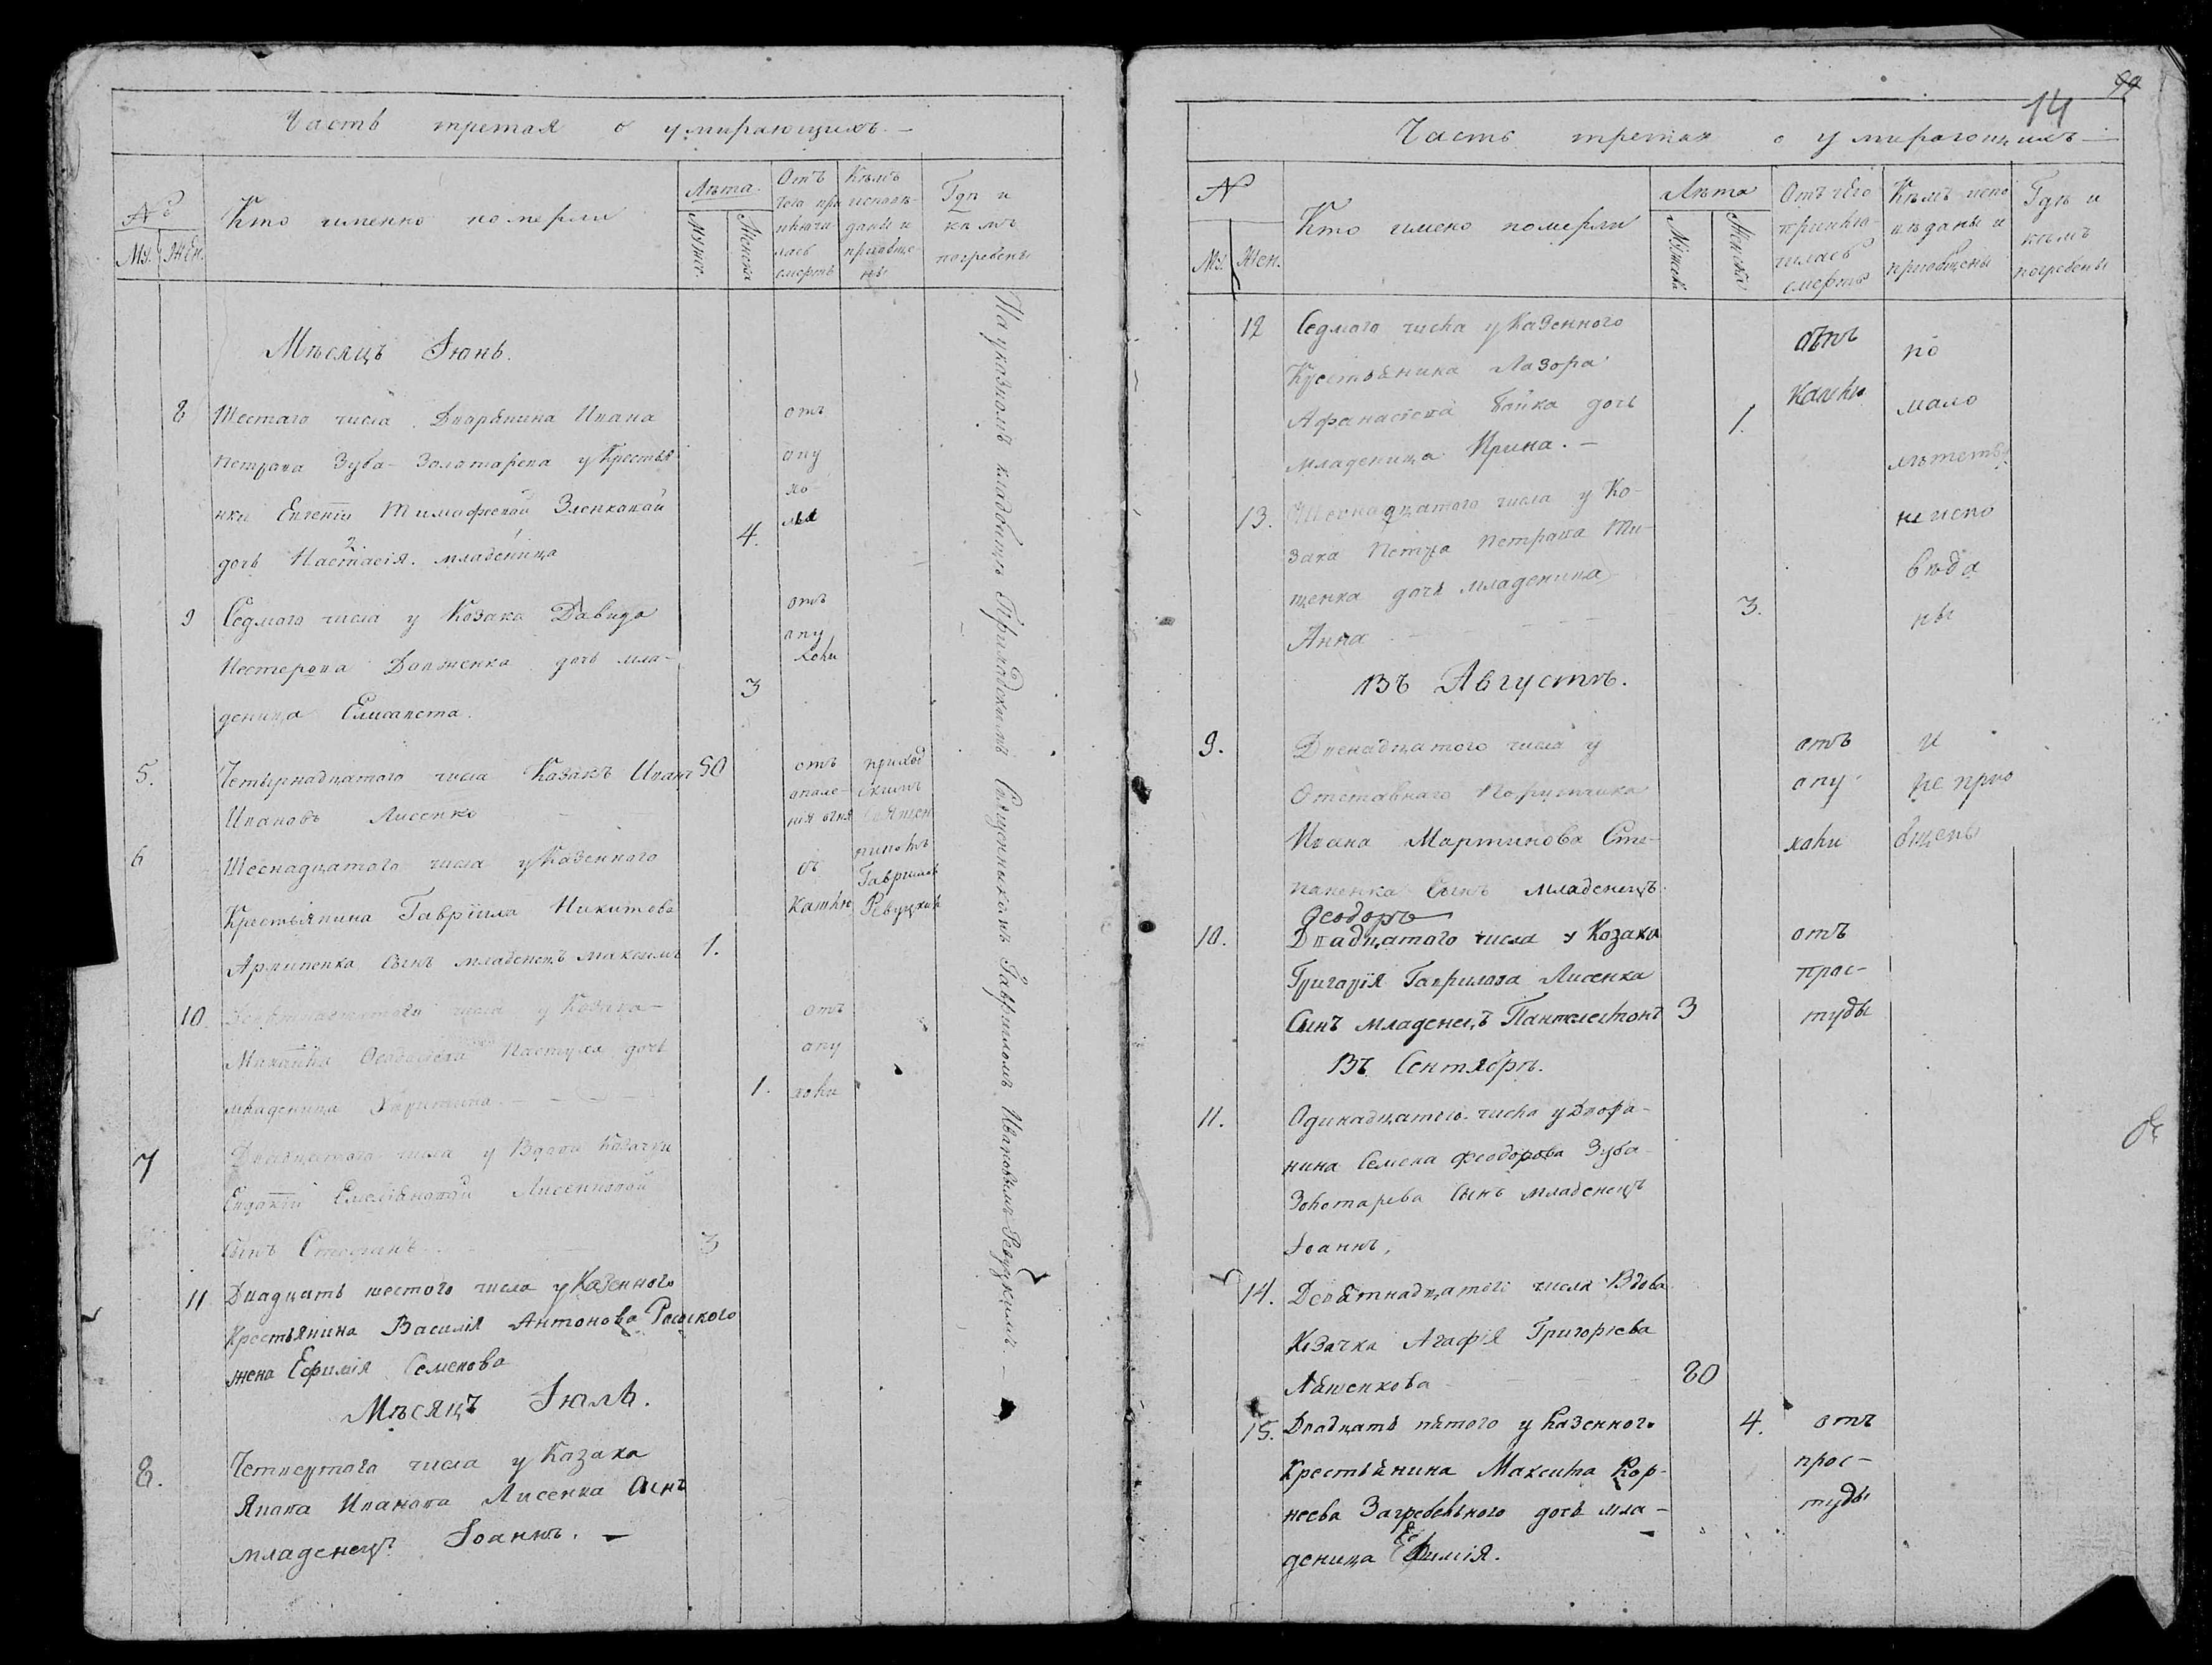 Часть третая о умирающихъ. —
№
Му. Жен.
Кто именно померли
Лѣта.
Мужес.
Женска
Отъ
чего при
ключи
лась
смерть
Кѣмъ
исповѣ-
даны и
приобще-
ны
Гдѣ и
кѣмъ
погребены
Мѣсяцъ Іюнь.
8 Шестаго числа Дворянина Ивана
Петрова Зуба-Золотарева у Крестья
нки Евгеніи Тимофеевой Зленковой
дочь Настасія. младеница 4.
отъ
опу
хо
ли
9 Седмого числа у Козака Давида
Нестерова Довженка дочь мла-
деница Елисавета. 3
отъ
опу
холи
5. Четырнадцатого числа Козакъ Иванъ 50
Ивановъ Лисенко
отъ
опале-
нія огня
приход
скимъ
Священ
никомъ
Гаврииломъ
Ревуцкимъ
6 Шеснадцатого числа у Казенного
Крестьянина Гавріила Никитова
Архипенка сынъ младенецъ Максимъ 1.
отъ
Кашлю
10. числа у Козака
Михайла Феодосіева Пастуха дочь
младеница Харитина 1.
отъ
опу
холи
7 Двадцатого числа у Вдовы Козачки
Евдокіи Емеліановой Лисенковой
сынъ Стефанъ 3
11 Двадцать шестого числа у Казенного
Крестьянина Василія Антонова
жена Ефимія Семенова
Мѣсяцъ Іюль.
8. Четвертого числа у Козака
Якова Иванова Лисенка Сынъ
младенецъ Іоаннъ. —
На указномъ кладбищѣ Приходскимъ Священникомъ Гаврииломъ Ивановымъ Ревуцкимъ. —
14
Часть третая о умирающихъ —
№
Му. Жен.
Кто имено померли
Лѣта
Мужеска
Женска
Отъ чего
приклю-
чилась
смерть
Кѣмъ испо
вѣданы и
приобщены
Гдѣ и
кѣмъ
погребены
12 Седмого числа у Казенного
Крестьянина Лазора
Афанасіева Бойка дочь 1.
младеница Ирина. —
отъ
Кашлю
по
мало
лѣтству
не испо
вѣда
ны
13. Шеснадцатого числа у Ко-
зака Петра Петрова Ти-
щенка дочь младеница 3.
Анна
Въ Августѣ.
9. Двенадцатого числа у
Отставнаго Порутчика
Ивана Мартинова Сте-
паненка Сынъ младенецъ
Феодоръ
отъ
опу
холи
и
не прио
бщены
10. Двадцатого числа у Козака
Григорія Гаврилова Лисенка
Сынъ младенецъ Пантелеймонъ 3
отъ
прос-
туды
Въ Сентябрѣ.
11. Одинадцатого числа у Дворя-
нина Семена Феодорова Зуба-
Золотарева Сынъ младенецъ
Іоаннъ,
14. Девятнадцатого числа Вдова
Козачка Агафія Григорієва
Ляшенкова 80
15. Двадцать пятого у Казенного 4.
Крестьянина Максима Кор-
неева Загребельного дочь мла-
деница Ефимія.
отъ
прос-
туды